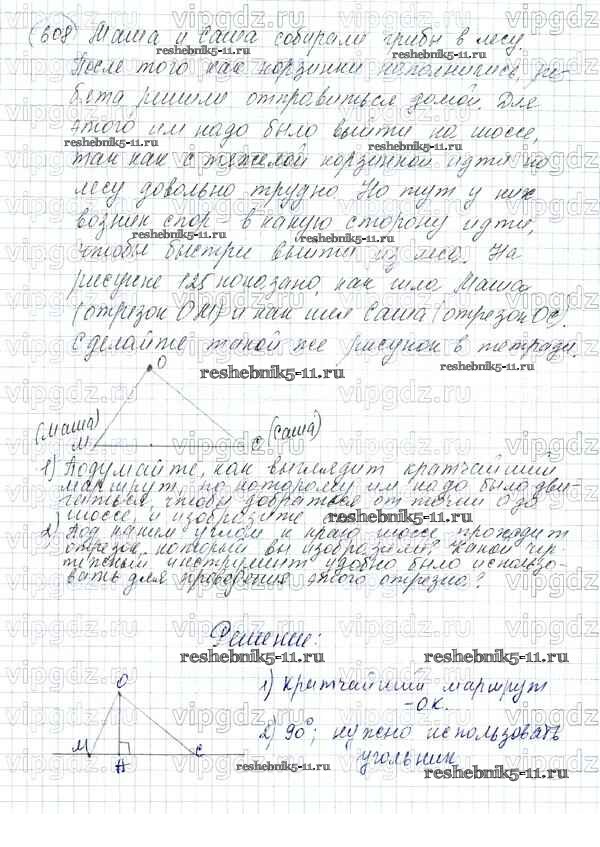 608 Маша и Саша собирали грибы в лесу.
После того как корзинки наполнились, ре-
бята решили отправиться домой. Для
этого им надо было выйти на шоссе,
так как с тяжелой корзинкой идти по
лесу довольно трудно. Но тут у них
возник спор - в какую сторону идти,
чтобы быстрее выйти из леса. На
рисунке 125 показано, как шла Маша
(отрезок ОМ) и как шел Саша (отрезок ОС).
Сделайте такой же рисунок в тетради.
О
(Маша) М С (Саша)
1) Подумайте, как выглядит кратчайший
маршрут, по которому им надо было дви-
гаться, чтобы добраться от точки О до
шоссе, и изобразите
2) Под каким углом к краю шоссе проходит
отрезок, который вы изобразили? Какой чер-
тежный инструмент удобно было использо-
вать для проведения этого отрезка?
Решение:
О
М Н С
1) Кратчайший маршрут
- ОК.
2) 90°; нужно использовать
угольник
reshebnik5-11.ru
vipgdz.ru